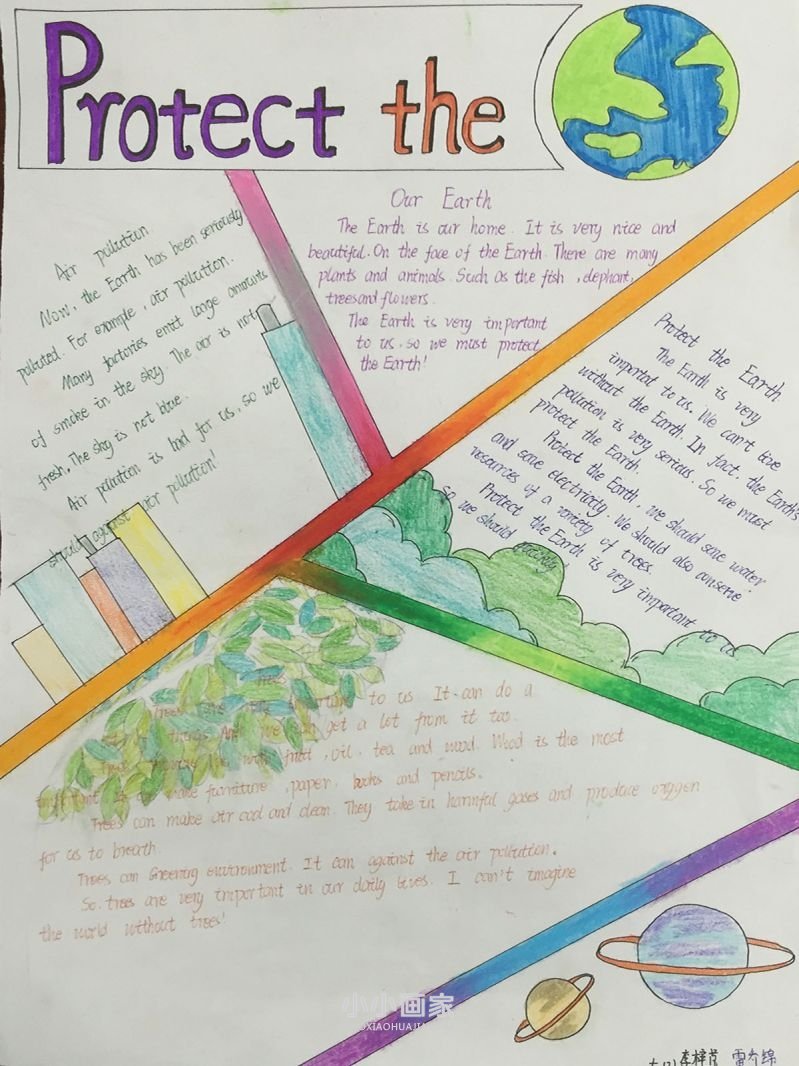 Protect the
Our Earth
The Earth is our home. It is very nice and
beautiful. On the face of the Earth. There are many
plants and animals. Such as the fish, elephant,
trees and flowers.
The Earth is very important
to us, so we must protect
the Earth!
Air pollution
Now, the Earth has been seriously
polluted. For example, air pollution.
Many factories emit large amounts
of smoke in the sky. The air is not
fresh. The sky is not blue.
Air pollution is bad for us, so we
should against air pollution!
Protect the Earth
The Earth is very
importat to us. We can't live
without the Earth. In fact, the Earth's
pollution is very serious. So we must
protect the Earth.
Protect the Earth, we should save water
and save electricity. We should also conserve
resources of a variety of trees
Protect the Earth is very important to us
so we should
to us. It can do a
get a lot from it too.
fruit, oil, tea and wood. Wood is the most
make furniture, paper, books and pencils.
Trees can make air cool and clean. They take in harmful gases and produce oxygen
for us to breath.
Trees can Greening environment. It can against the air pollution.
So: trees are very important in our daily lives. I can't imagine
the world without trees!
小小画家
李梓茂 雷